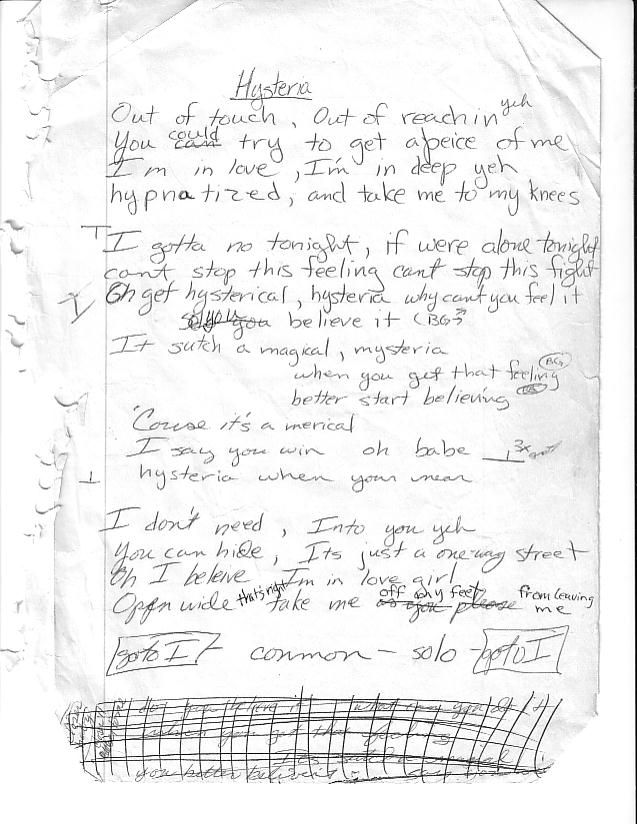 Hysteria
Out of touch, Out of reach in yeh
You could try to get a peice of me
I'm in love, I'm in deep yeh
hypnatized, and take me to my knees
I gotta no tonight, if were alone tonight
can't stop this feeling cant stop this fight
Oh get hysterical, hysteria why cant you feel it
believe it (BG
It sutch a magical, mysteria
when you get that feeling BG
better start believing
'Couse it's a merical
I say you win oh babe 3x
hysteria when your near
I don't need, Into you yeh
You can hide, Its just a one way street
Oh I beleive I'm in love girl
Open wide that's right take me off my feet from leaving me
go to I - common - solo - go to I